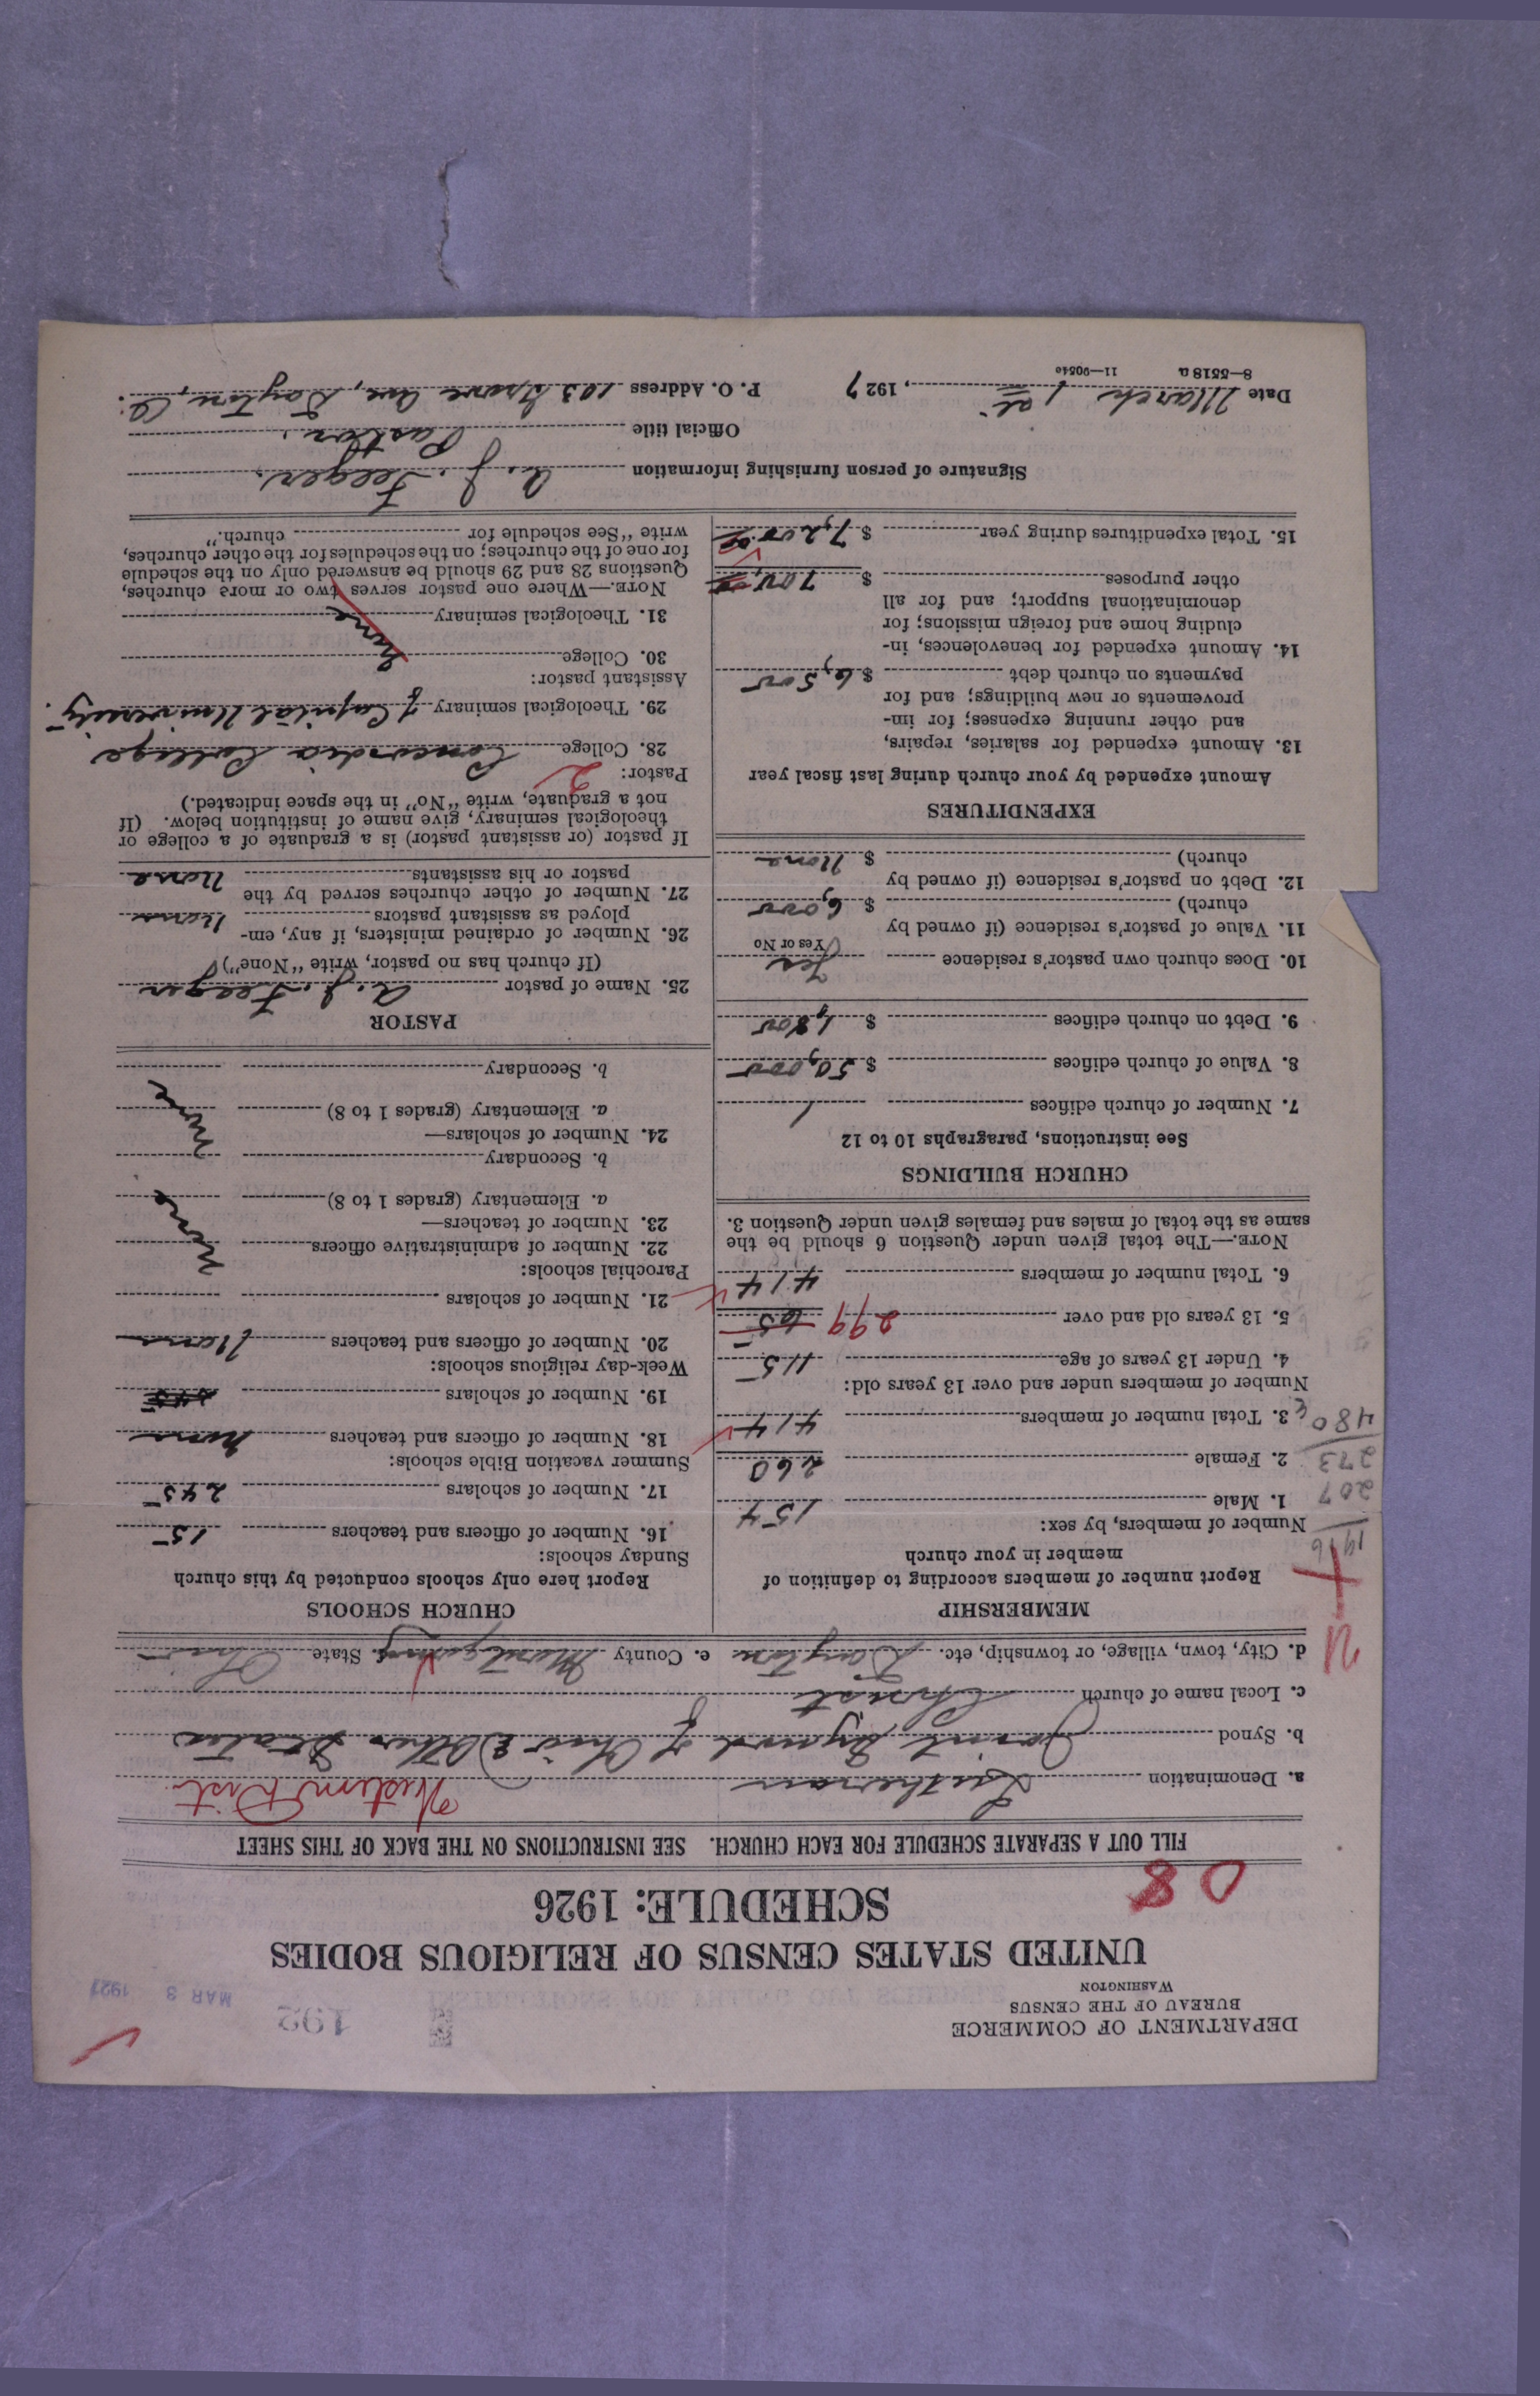 DEPARTMENT OF COMMERCE
BUREAU OF THE CENSUS
WASHINGTON
192
MAR 3 1927
UNITED STATES CENSUS OF RELIGIOUS BODIES
SCHEDULE: 1926
08
FILL OUT A SEPARATE SCHEDULE FOR EACH CHURCH. SEE INSTRUCTIONS ON THE BACK OF THIS SHEET
a. Denomination Lutheran Western Dist.
b. Synod Joint Synod of Ohio & Other States
c. Local name of church Christ
d. City, town, village, or township, etc. Dayton e. County Montgomery f. State Ohio
MEMBERSHIP
Report number of members according to definition of
member in your church
1916
207
273
480
Number of members, by sex:
1. Male 154
2. Female 260
3. Total number of members 414
Number of members under and over 13 years old:
4. Under 13 years of age 115
5. 13 years old and over 299
6. Total number of members 414
NOTE.—The total given under Question 6 should be the
same as the total of males and females given under Question 3.
CHURCH BUILDINGS
See instructions, paragraphs 10 to 12
7. Number of church edifices 1
8. Value of church edifices $ 50,000
9. Debt on church edifices $ 1,800
10. Does church own pastor's residence Yes
Yes or No
11. Value of pastor's residence (if owned by
church) $ 6,000
12. Debt on pastor's residence (if owned by
church) $ None
EXPENDITURES
Amount expended by your church during last fiscal year
13. Amount expended for salaries, repairs,
and other running expenses; for im-
provements or new buildings; and for
payments on church debt $ 6,500
14. Amount expended for benevolences, in-
cluding home and foreign missions; for
denominational support; and for all
other purposes $ 700
15. Total expenditures during year $ 7,200
CHURCH SCHOOLS
Report here only schools conducted by this church
Sunday schools:
16. Number of officers and teachers 15
17. Number of scholars 245
Summer vacation Bible schools:
18. Number of officers and teachers None
19. Number of scholars
Week-day religious schools:
20. Number of officers and teachers None
21. Number of scholars
Parochial schools:
22. Number of administrative officers
23. Number of teachers—
a. Elementary (grades 1 to 8) None
b. Secondary
24. Number of scholars—
a. Elementary (grades 1 to 8) None
b. Secondary
PASTOR
25. Name of pastor A. J. Feeger
(If church has no pastor, write "None")
26. Number of ordained ministers, if any, em-
ployed as assistant pastors None
27. Number of other churches served by the
pastor or his assistants None
If pastor (or assistant pastor) is a graduate of a college or
theological seminary, give name of institution below. (If
not a graduate, write "No" in the space indicated.)
Pastor: 2
28. College Concordia College
29. Theological seminary of Capital University.
Assistant pastor:
30. College
31. Theological seminary None
NOTE.—Where one pastor serves two or more churches,
Questions 28 and 29 should be answered only on the schedule
for one of the churches; on the schedules for the other churches,
write "See schedule for church."
Signature of person furnishing information A. J. Feeger.
Official title Pastor.
Date March 1st, 1927 P. O. Address 103 Grove Ave, Dayton, O.
8—5518 a 11—9054c